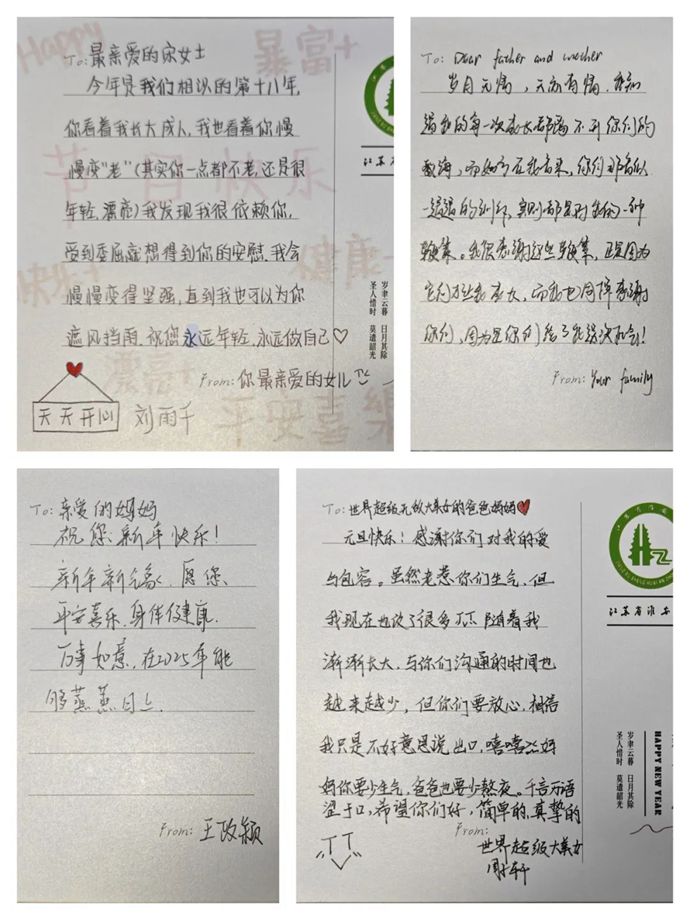 Happy
暴富+
节日快乐
快乐+
健康+
平安喜乐
To: 最亲爱的宋女士
今年是我们相识的第十八年,
你看着我长大成人,我也看着你慢
慢变“老”(其实你一点都不老,还是很
年轻,漂亮)我发现我很依赖你,
受到委屈就想得到你的安慰.我会
慢慢变得坚强,直到我也可以为你
遮风挡雨.祝您永远年轻,永远做自己♡
From: 你最亲爱的女儿
天天开心
刘雨千
岁聿云暮 日月其除
圣人惜时 莫遣韶光
江苏省
To: Dear father and mother
岁月无情,天亦有情.
我的每一次 不到你们的
教海,而如今在我看来,你们那看似
一遍遍的训斥,实则都是对我的一种
鞭策。我很感谢这些鞭策,正是因为
它们才让我 大,而我也同样感谢
你们,因为是你们给了我这次机会!
From: Your family
To: 亲爱的妈妈
祝您:新年快乐!
新年新气象,愿您、
平安喜乐、身体健康.
万事如意,在2025年能
够蒸蒸日上.
From: 王政颖
To: 世界超级无敌大美女的爸爸妈妈
元旦快乐!感谢你们对我的爱
与包容。虽然老惹你们生气,但
我现在也改了很多 随着我
渐渐长大,与你们沟通的时间也
越来越少,但你们要放心,相信
我只是不好意思说出口,嘻嘻 妈
妈你要少生气,爸爸也要少熬夜。千言万语
止于口,希望你们好,简单的,真挚的
From:
世界超级大美女
周 轩
江苏省淮安
岁聿云暮 日月其除
圣人惜时 莫遣韶光
HAPPY NEW YEAR